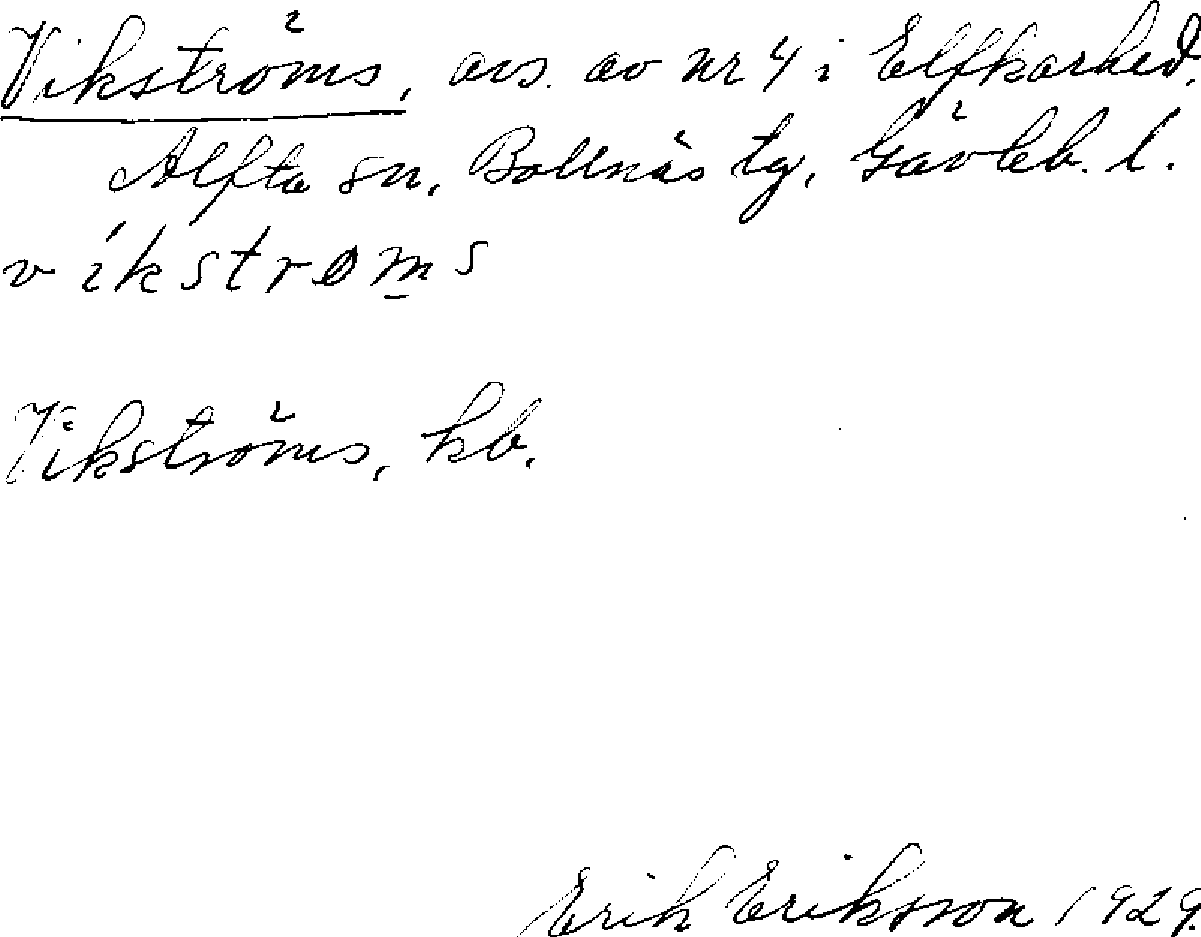 Vikströms, avs. av nr 4 i Elfkarhed.
Alfta sn, Bollnäs tg, Gävleb. l.
víkstrøm̲s
Vikströms, kb.
Erik Eriksson 1929.